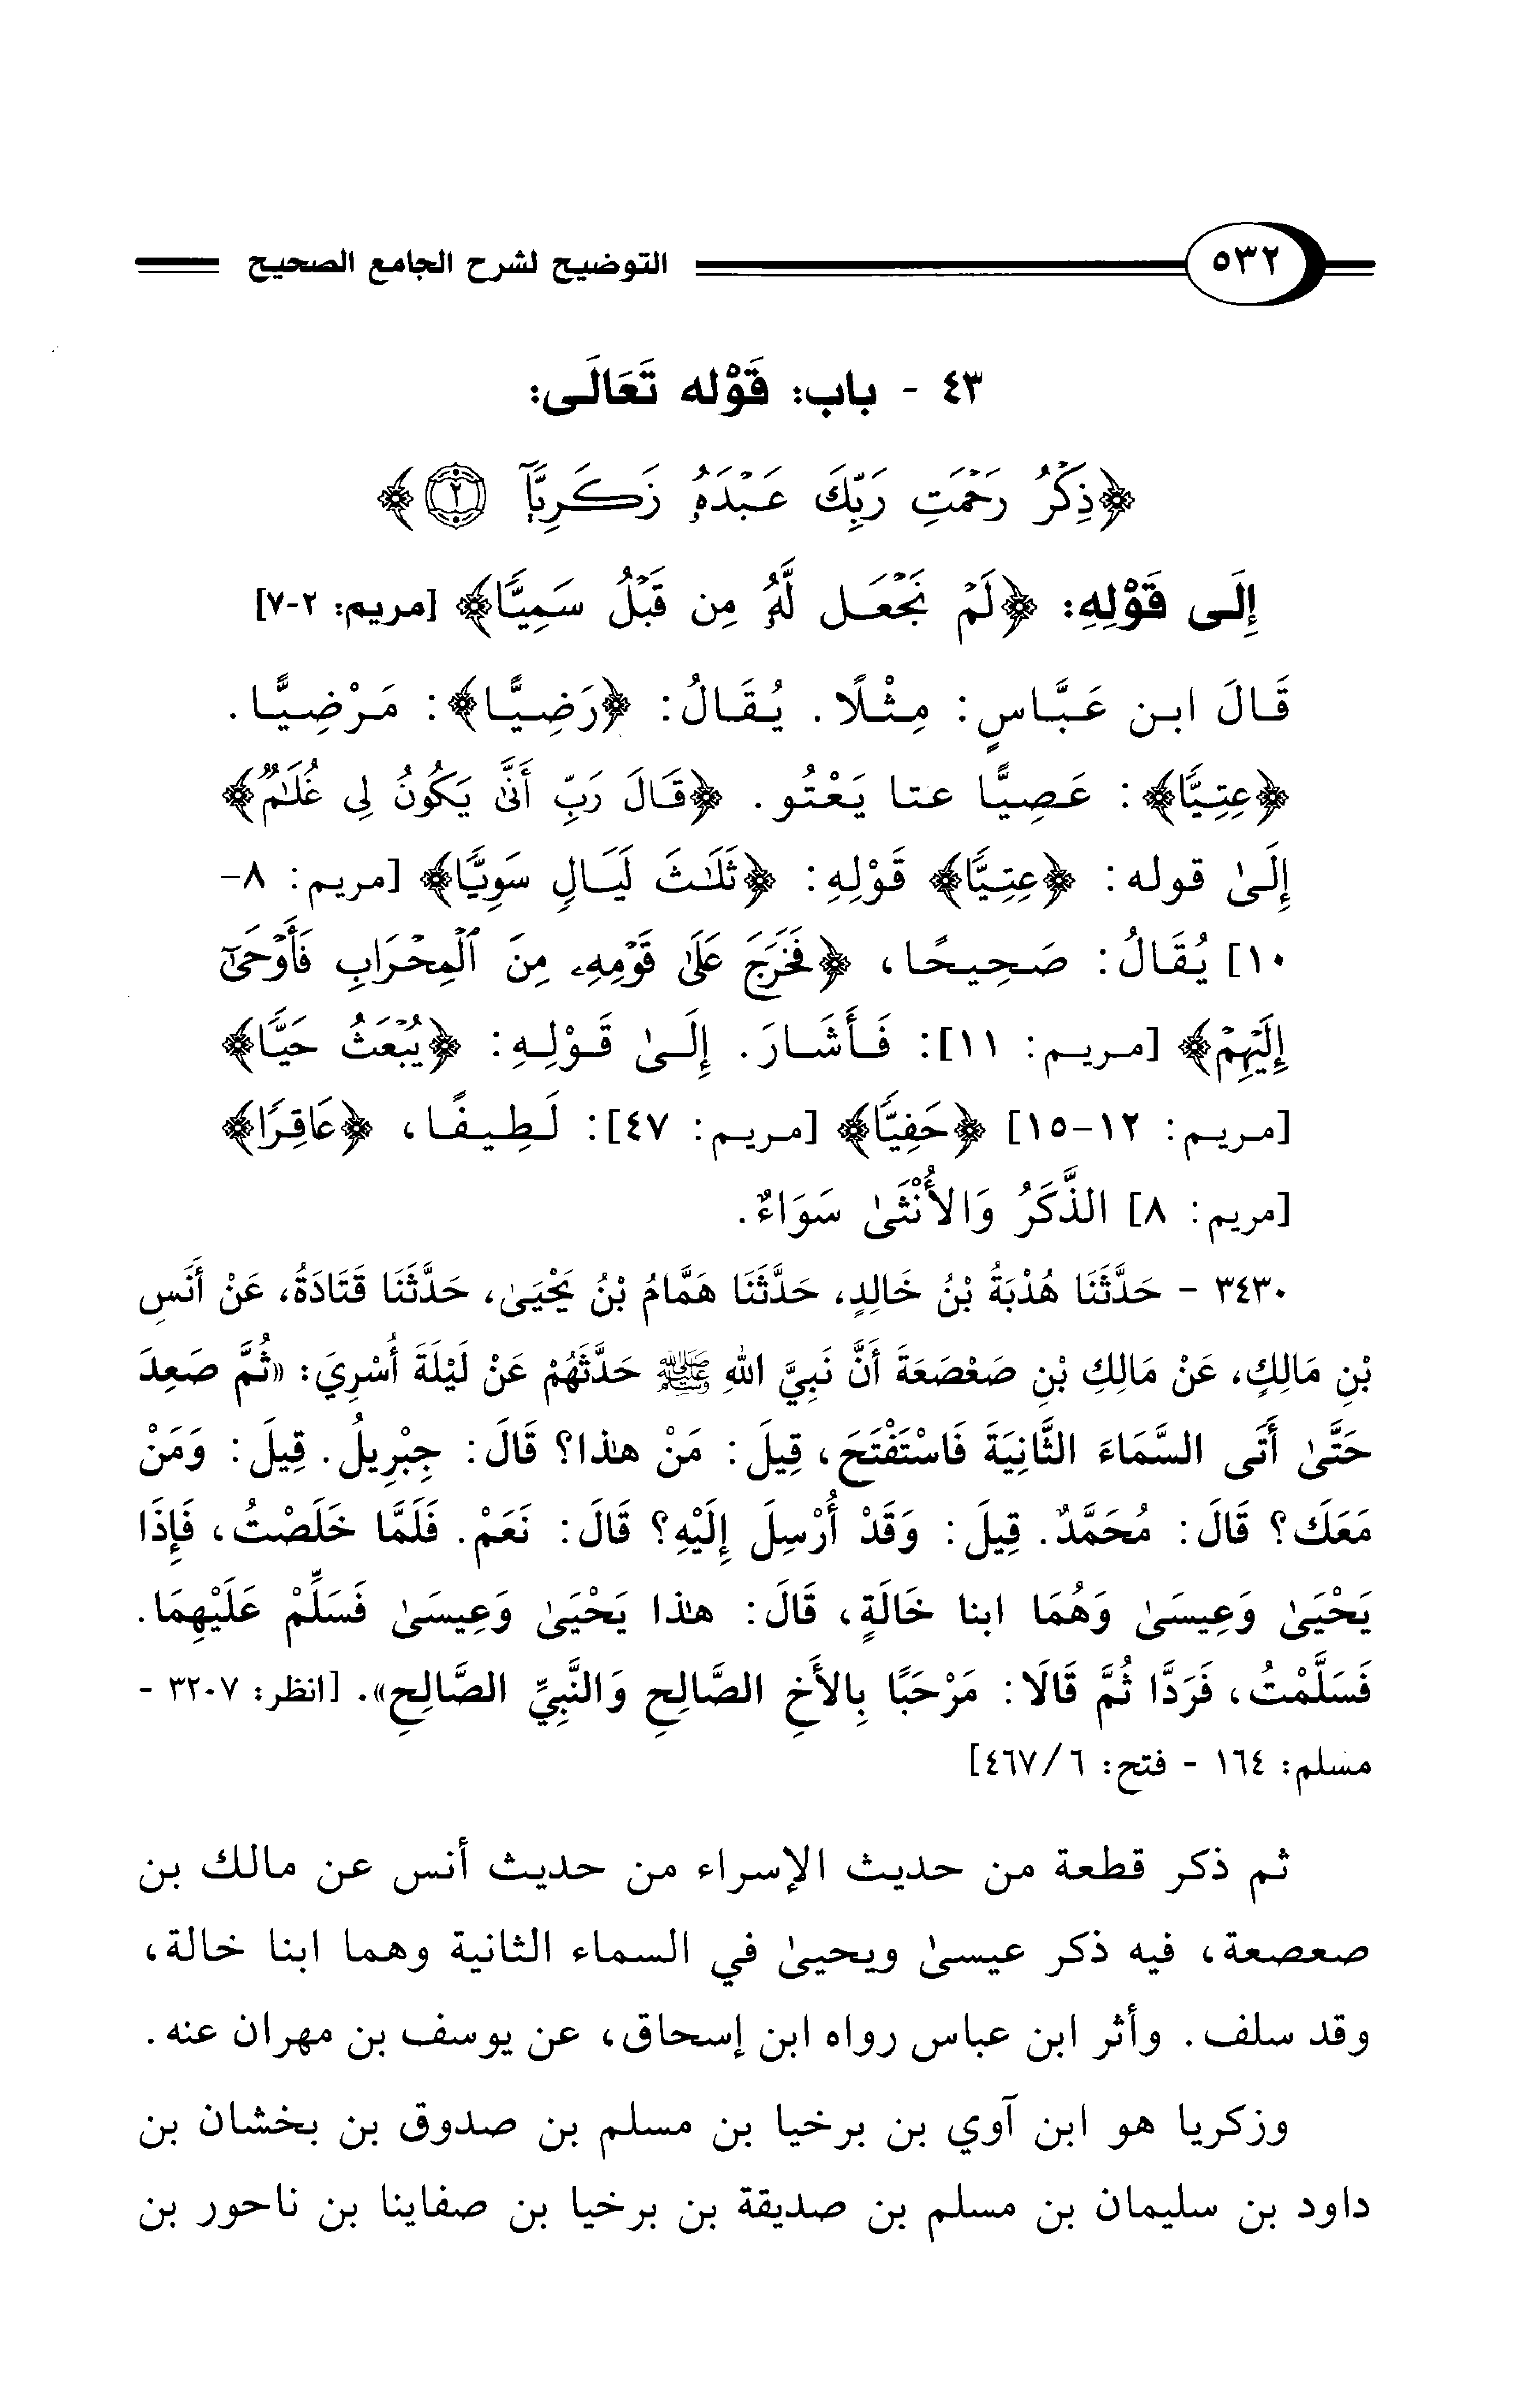 ٥٣٢ التوضيح لشرح الجامع الصحيح
٤٣ - باب: قَوْله تَعَالَى:
﴿ذِكْرُ رَحْمَتِ رَبِّكَ عَبْدَهُ زَكَرِيَّآ ٢﴾
إِلَى قَوْلِهِ: ﴿لَمْ نَجْعَل لَّهُ مِن قَبْلُ سَمِيًّا﴾ [مريم: ٢-٧]
قَالَ ابن عَبَّاسٍ: مِثْلًا. يُقَالُ: ﴿رَضِيًّا﴾: مَرْضِيًّا.
﴿عِتِيًّا﴾: عَصِيًّا عتا يَعْتُو. ﴿قَالَ رَبِّ أَنَّىٰ يَكُونُ لِى غُلَٰمٌ﴾
إِلَىٰ قوله: ﴿عِتِيًّا﴾ قَوْلِهِ: ﴿ثَلَٰثَ لَيَالٍ سَوِيًّا﴾ [مريم: ٨-
١٠] يُقَالُ: صَحِيحًا، ﴿فَخَرَجَ عَلَىٰ قَوْمِهِۦ مِنَ ٱلْمِحْرَابِ فَأَوْحَىٰٓ
إِلَيْهِمْ﴾ [مريم: ١١]: فَأَشَارَ. إِلَىٰ قَوْلِهِ: ﴿يُبْعَثُ حَيًّا﴾
[مريم: ١٢-١٥] ﴿حَفِيًّا﴾ [مريم: ٤٧]: لَطِيفًا، ﴿عَاقِرًا﴾
[مريم: ٨] الذَّكَرُ وَالأُنْثَىٰ سَوَاءٌ.
٣٤٣٠ - حَدَّثَنَا هُدْبَةُ بْنُ خَالِدٍ، حَدَّثَنَا هَمَّامُ بْنُ يَحْيَىٰ، حَدَّثَنَا قَتَادَةُ، عَنْ أَنَسِ
بْنِ مَالِكٍ، عَنْ مَالِكِ بْنِ صَعْصَعَةَ أَنَّ نَبِيَّ اللهِ ﷺ حَدَّثَهُمْ عَنْ لَيْلَةَ أُسْرِيَ: «ثُمَّ صَعِدَ
حَتَّىٰ أَتَى السَّمَاءَ الثَّانِيَةَ فَاسْتَفْتَحَ، قِيلَ: مَنْ هٰذا؟ قَالَ: جِبْرِيلُ. قِيلَ: وَمَنْ
مَعَكَ؟ قَالَ: مُحَمَّدٌ. قِيلَ: وَقَدْ أُرْسِلَ إِلَيْهِ؟ قَالَ: نَعَمْ. فَلَمَّا خَلَصْتُ، فَإِذَا
يَحْيَىٰ وَعِيسَىٰ وَهُمَا ابنا خَالَةٍ، قَالَ: هٰذا يَحْيَىٰ وَعِيسَىٰ فَسَلِّمْ عَلَيْهِمَا.
فَسَلَّمْتُ، فَرَدَّا ثُمَّ قَالَا: مَرْحَبًا بِالأَخِ الصَّالِحِ وَالنَّبِيِّ الصَّالِحِ». [انظر: ٣٢٠٧ -
مسلم: ١٦٤ - فتح: ٦/ ٤٦٧]
ثم ذكر قطعة من حديث الإسراء من حديث أنس عن مالك بن
صعصعة، فيه ذكر عيسىٰ ويحيىٰ في السماء الثانية وهما ابنا خالة،
وقد سلف. وأثر ابن عباس رواه ابن إسحاق، عن يوسف بن مهران عنه.
وزكريا هو ابن آوي بن برخيا بن مسلم بن صدوق بن بخشان بن
داود بن سليمان بن مسلم بن صديقة بن برخيا بن صفاينا بن ناحور بن